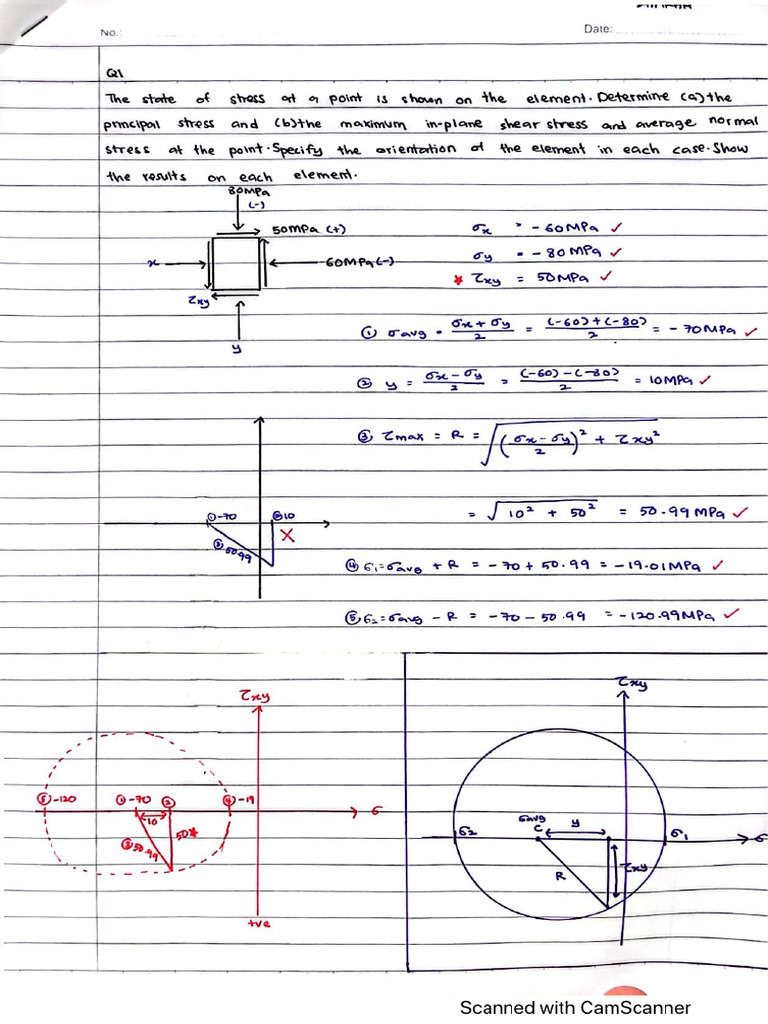 No.:
Date:
Q1
The state of stress at a point is shown on the element. Determine (a) the
principal stress and (b) the maximum in-plane shear stress and average normal
stress at the point. Specify the orientation of the element in each case. Show
the results on each element.
80MPa
(-)
50MPa (+)
x
60MPa(-)
τxy
y
σx = -60MPa ✓
σy = -80MPa ✓
* τxy = 50MPa ✓
① σavg = σx + σy / 2 = (-60)+(-80) / 2 = -70MPa ✓
② y = σx - σy / 2 = (-60)-(-80) / 2 = 10MPa ✓
③ τmax = R = √(σx-σy / 2)² + τxy²
= √10² + 50² = 50.99MPa ✓
①-70
②10
X
③50.99
④ σ1=σavg + R = -70+50.99 = -19.01MPa ✓
⑤ σ2=σavg - R = -70-50.99 = -120.99MPa ✓
τxy
⑤-120
①-70
②
④-19
σ
10
50*
③50.99
+ve
τxy
σavg
C
y
σ2
σ1
σ
R
τxy
Scanned with CamScanner